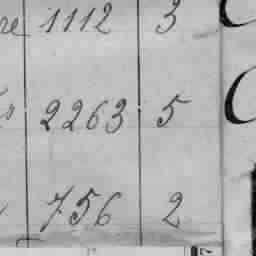 re 1112 3
s 2263 5
756 2